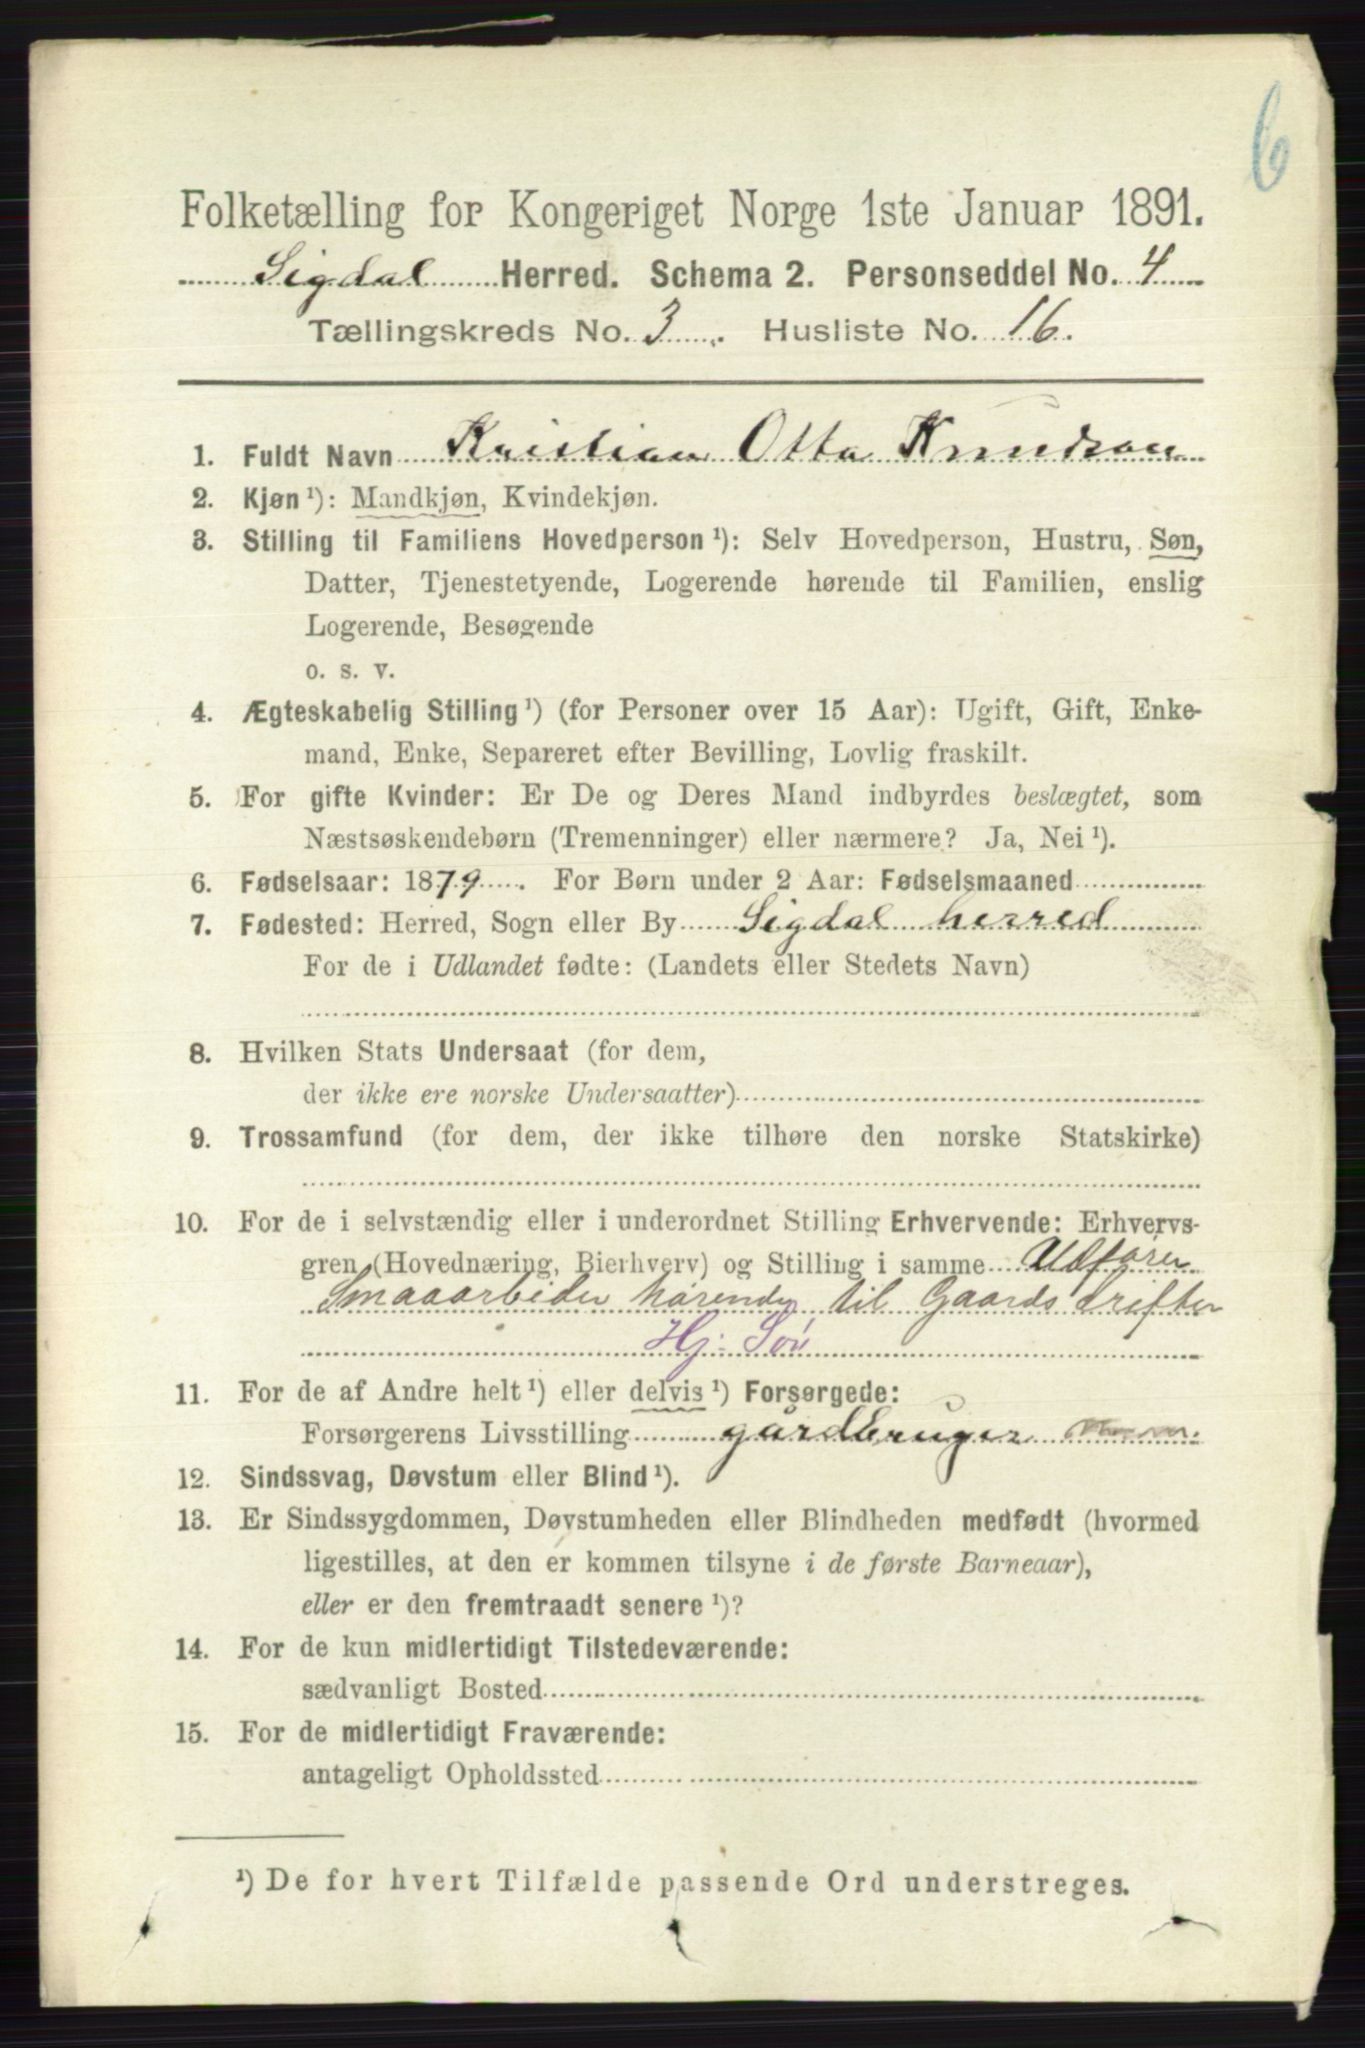 6
Folketælling for Kongeriget Norge 1ste Januar 1891.
Sigdal Herred. Schema 2. Personseddel No. 4
Tællingskreds No. 3. Husliste No. 16.
1. Fuldt Navn Kristian Otto Knudsen
2. Kjøn ¹): Mandkjøn, Kvindekjøn.
3. Stilling til Familiens Hovedperson ¹): Selv Hovedperson, Hustru, Søn,
Datter, Tjenestetyende, Logerende hørende til Familien, enslig
Logerende, Besøgende
o. s. v.
4. Ægteskabelig Stilling ¹) (for Personer over 15 Aar): Ugift, Gift, Enke-
mand, Enke, Separeret efter Bevilling, Lovlig fraskilt.
5. For gifte Kvinder: Er De og Deres Mand indbyrdes beslægtet, som
Næstsøskendebørn (Tremenninger) eller nærmere? Ja, Nei ¹).
6. Fødselsaar: 1879. For Børn under 2 Aar: Fødselsmaaned
7. Fødested: Herred, Sogn eller By Sigdal herred
For de i Udlandet fødte: (Landets eller Stedets Navn)
8. Hvilken Stats Undersaat (for dem,
der ikke ere norske Undersaatter)
9. Trossamfund (for dem, der ikke tilhøre den norske Statskirke)
10. For de i selvstændig eller i underordnet Stilling Erhvervende: Erhvervs-
gren (Hovednæring, Bierhverv) og Stilling i samme Udfører
Smaaarbeider hørende til Gaards driften
Hj: Søn
11. For de af Andre helt ¹) eller delvis ¹) Forsørgede:
Forsørgerens Livsstilling gårdbruger
12. Sindssvag, Døvstum eller Blind ¹).
13. Er Sindssygdommen, Døvstumheden eller Blindheden medfødt (hvormed
ligestilles, at den er kommen tilsyne i de første Barneaar),
eller er den fremtraadt senere ¹)?
14. For de kun midlertidigt Tilstedeværende:
sædvanligt Bosted
15. For de midlertidigt Fraværende:
antageligt Opholdssted
¹) De for hvert Tilfælde passende Ord understreges.